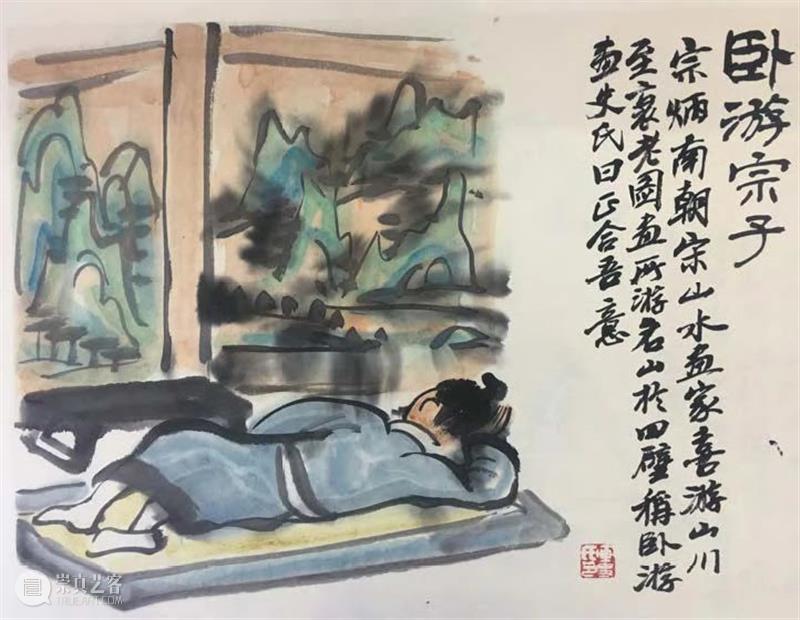 卧游宗子
宗炳南朝宋山水画家喜游山川
至衰老图画所游名山於四壁稱卧游
画史氏曰正合吾意
崇真艺客
TRUEART.COM